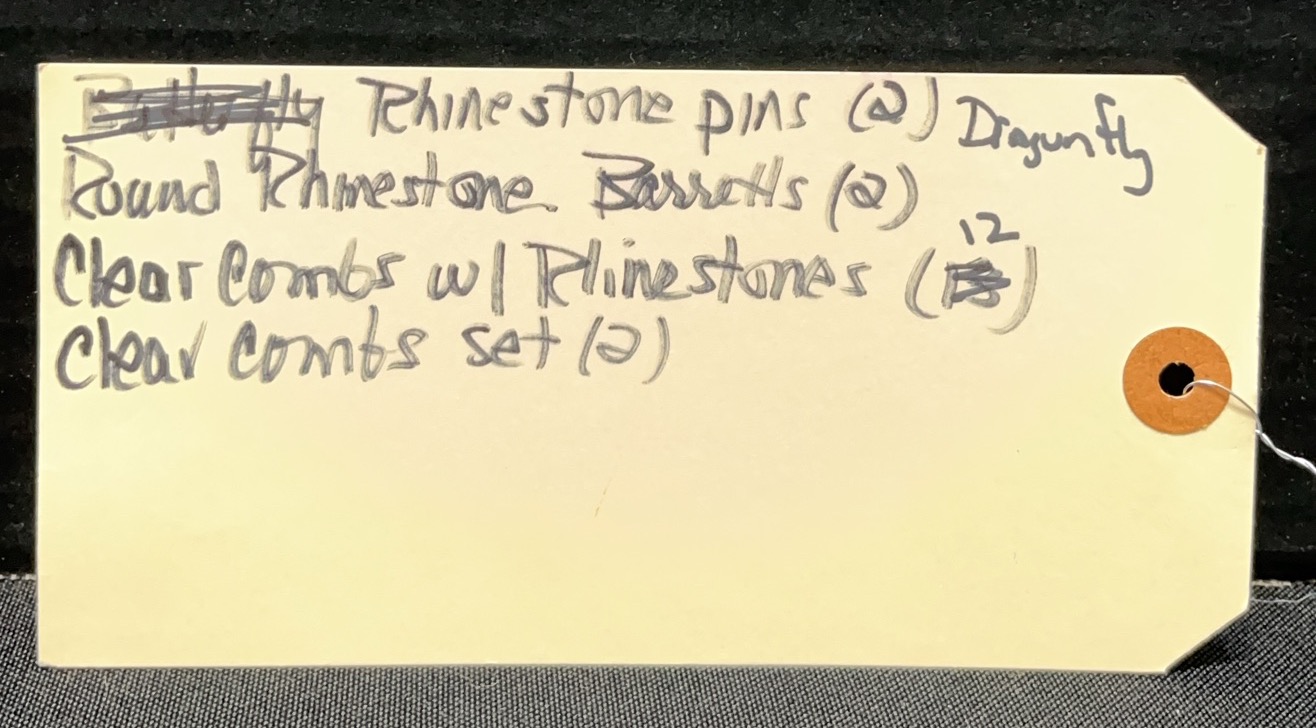 Butterfly Rhinestone pins (2) Dragonfly
Round Rhinestone Barretts (2)
Clear Combs w/ Rhinestones (12)
Clear Combs set (2)